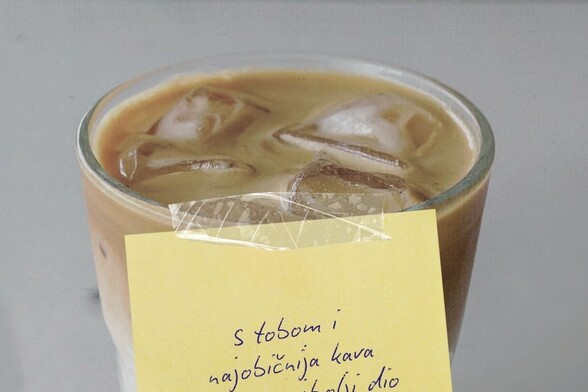 s tobom i
najobičnija kava
dio